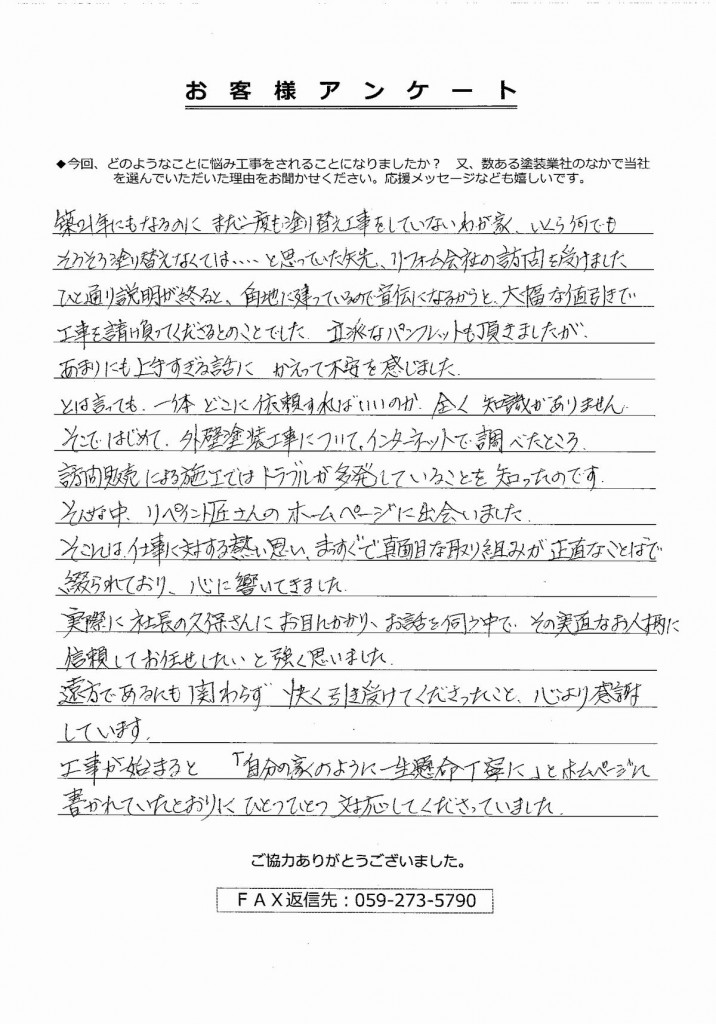 お客様アンケート
◆今回、どのようなことに悩み工事をされることになりましたか？ 又、数ある塗装業社のなかで当社
を選んでいただいた理由をお聞かせください。応援メッセージなども嬉しいです。
築21年にもなるのに まだ一度も塗り替え工事をしていないわが家、いくら何でも
そろそろ塗り替えなくては・・・・と思っていた矢先、リフォーム会社の訪問を受けました
ひと通り説明が終ると、角地に建っているので宣伝になるからと、大幅な値引きで
工事を請け負ってくださるとのことでした。立派なパンフレットも頂きましたが、
あまりにも上手すぎる話に かえって不安を感じました.
とは言っても、一体 どこに依頼すればいいのか、全く 知識がありません.
そこではじめて、外壁塗装工事について、インターネットで調べたところ、
訪問販売による施工ではトラブルが多発していることを知ったのです.
そんな中、リペイント匠さんのホームページに出会いました.
そこには、仕事に対する熱い思い、まっすぐで真面目な取り組みが正直なことばで
綴られており、心に響いてきました.
実際に社長の久保さんにお目にかかり、お話を伺う中で、その実直なお人柄に
信頼してお任せしたいと強く思いました.
遠方であるにも関わらず 快く引き受けてくださったこと、心より感謝
しています.
工事が始まると 「自分の家のように一生懸命丁寧に」とホームページに
書かれていたとおりに ひとつひとつ 対応してくださっていました.
ご協力ありがとうございました。
ＦＡＸ返信先：059-273-5790